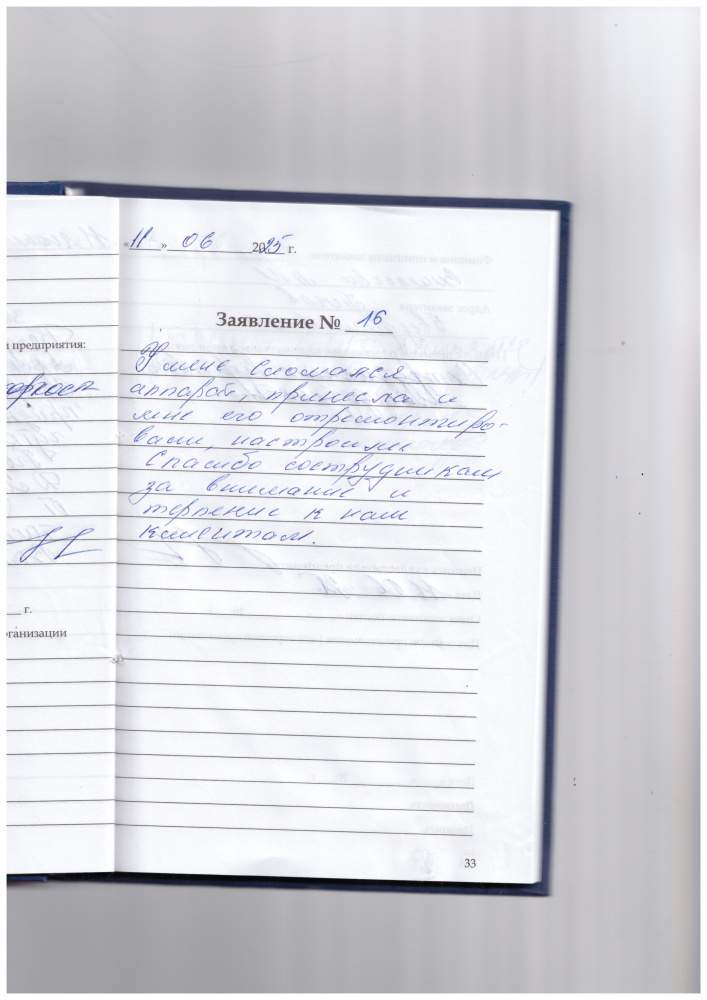 «11» 06 2025 г.
Заявление № 16
и предприятия:
У меня сломался
аппарат, принесла и
мне его отремонтиро-
вали, настроили
Спасибо сотрудникам
за внимание и
терпение к нам
клиентам.
г.
организации
33